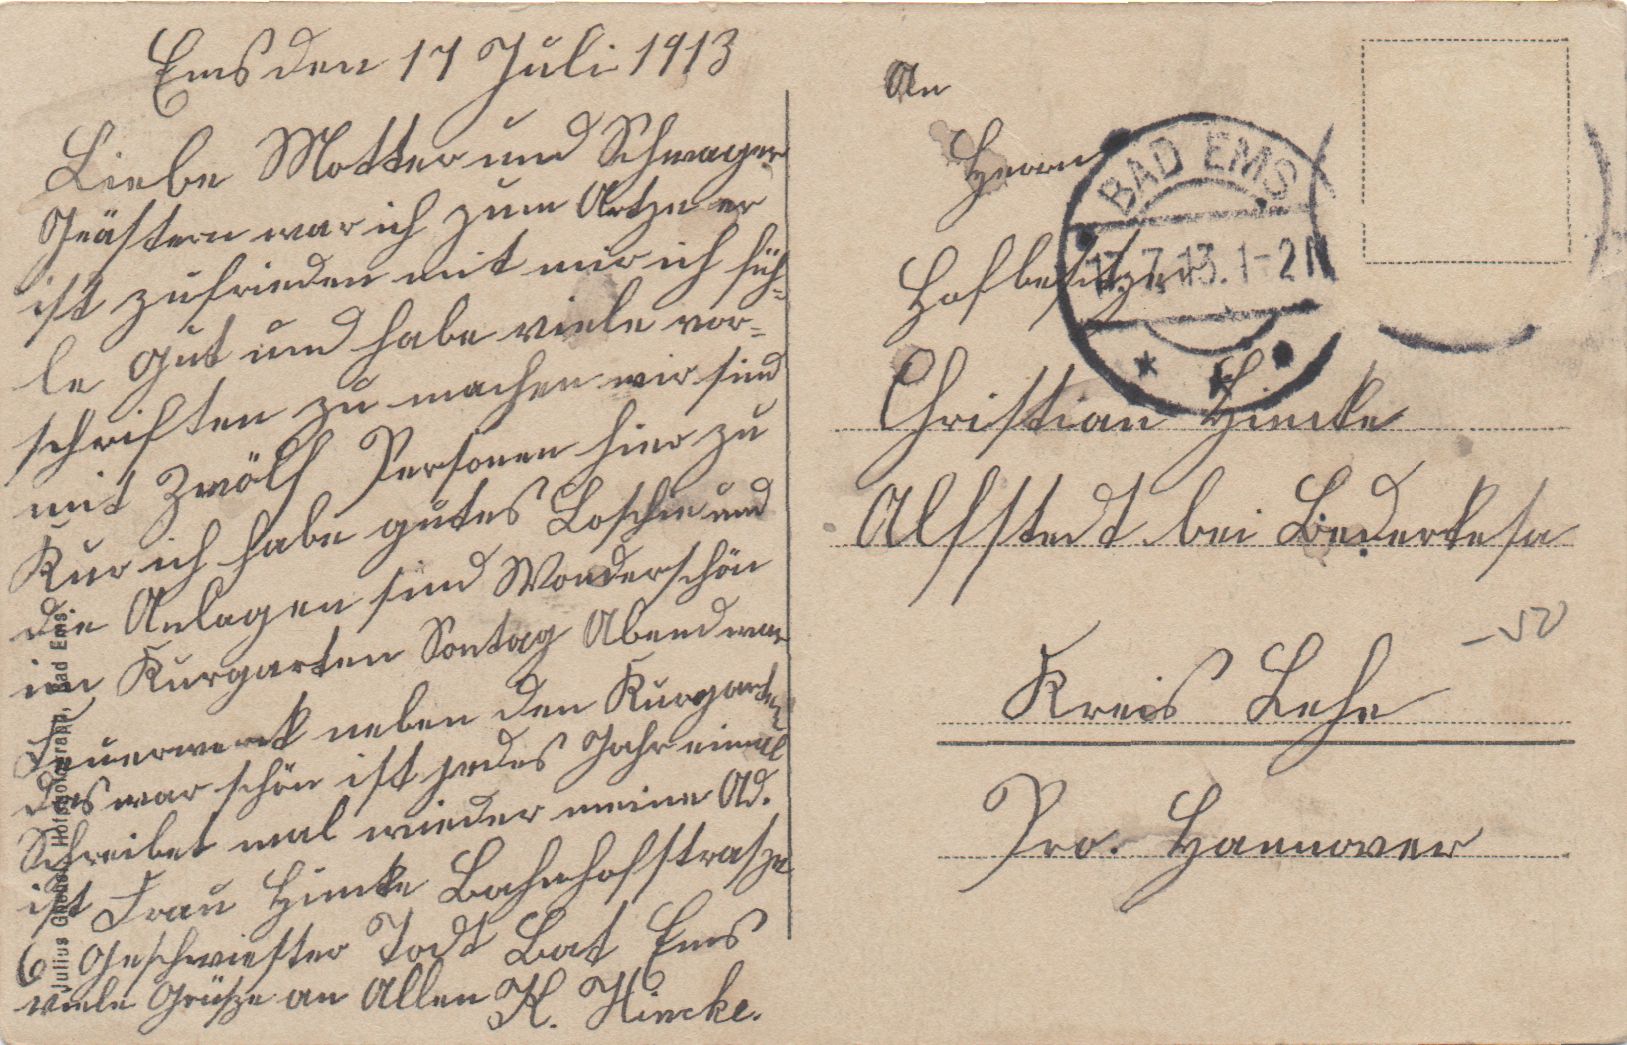 Ems den 17 Juli 1913
Liebe Motter und Schwager
Geästern war ich zum Artze er
ist zufrieden mit mir ich füh-
le gut und habe viele vor-
schriften zu machen wir sind
mit Zwölf Personen hier zu
Kur ich habe gutes Loschie und
die Anlagen sind Wonderschön
im Kurgarten Sontag Abend war
Feuerwerk neben den Kurgarten
das war schön ist jedes Jahr einmal
Schreibet mal wieder meine Ad.
ist Frau Hincke Bahnhofstrasze
6 Geschwiester Todt Bat Ems
viele Grüsze an Allen K. Hincke.
Julius Hofphotograph, Bad Ems.
An
Herrn
Hofbesitzer
Christian Hincke
Alfstedt bei Bederkesa
Kreis Lehe
Pro. Hannover
BAD EMS
17.7.13.1-2N
-50